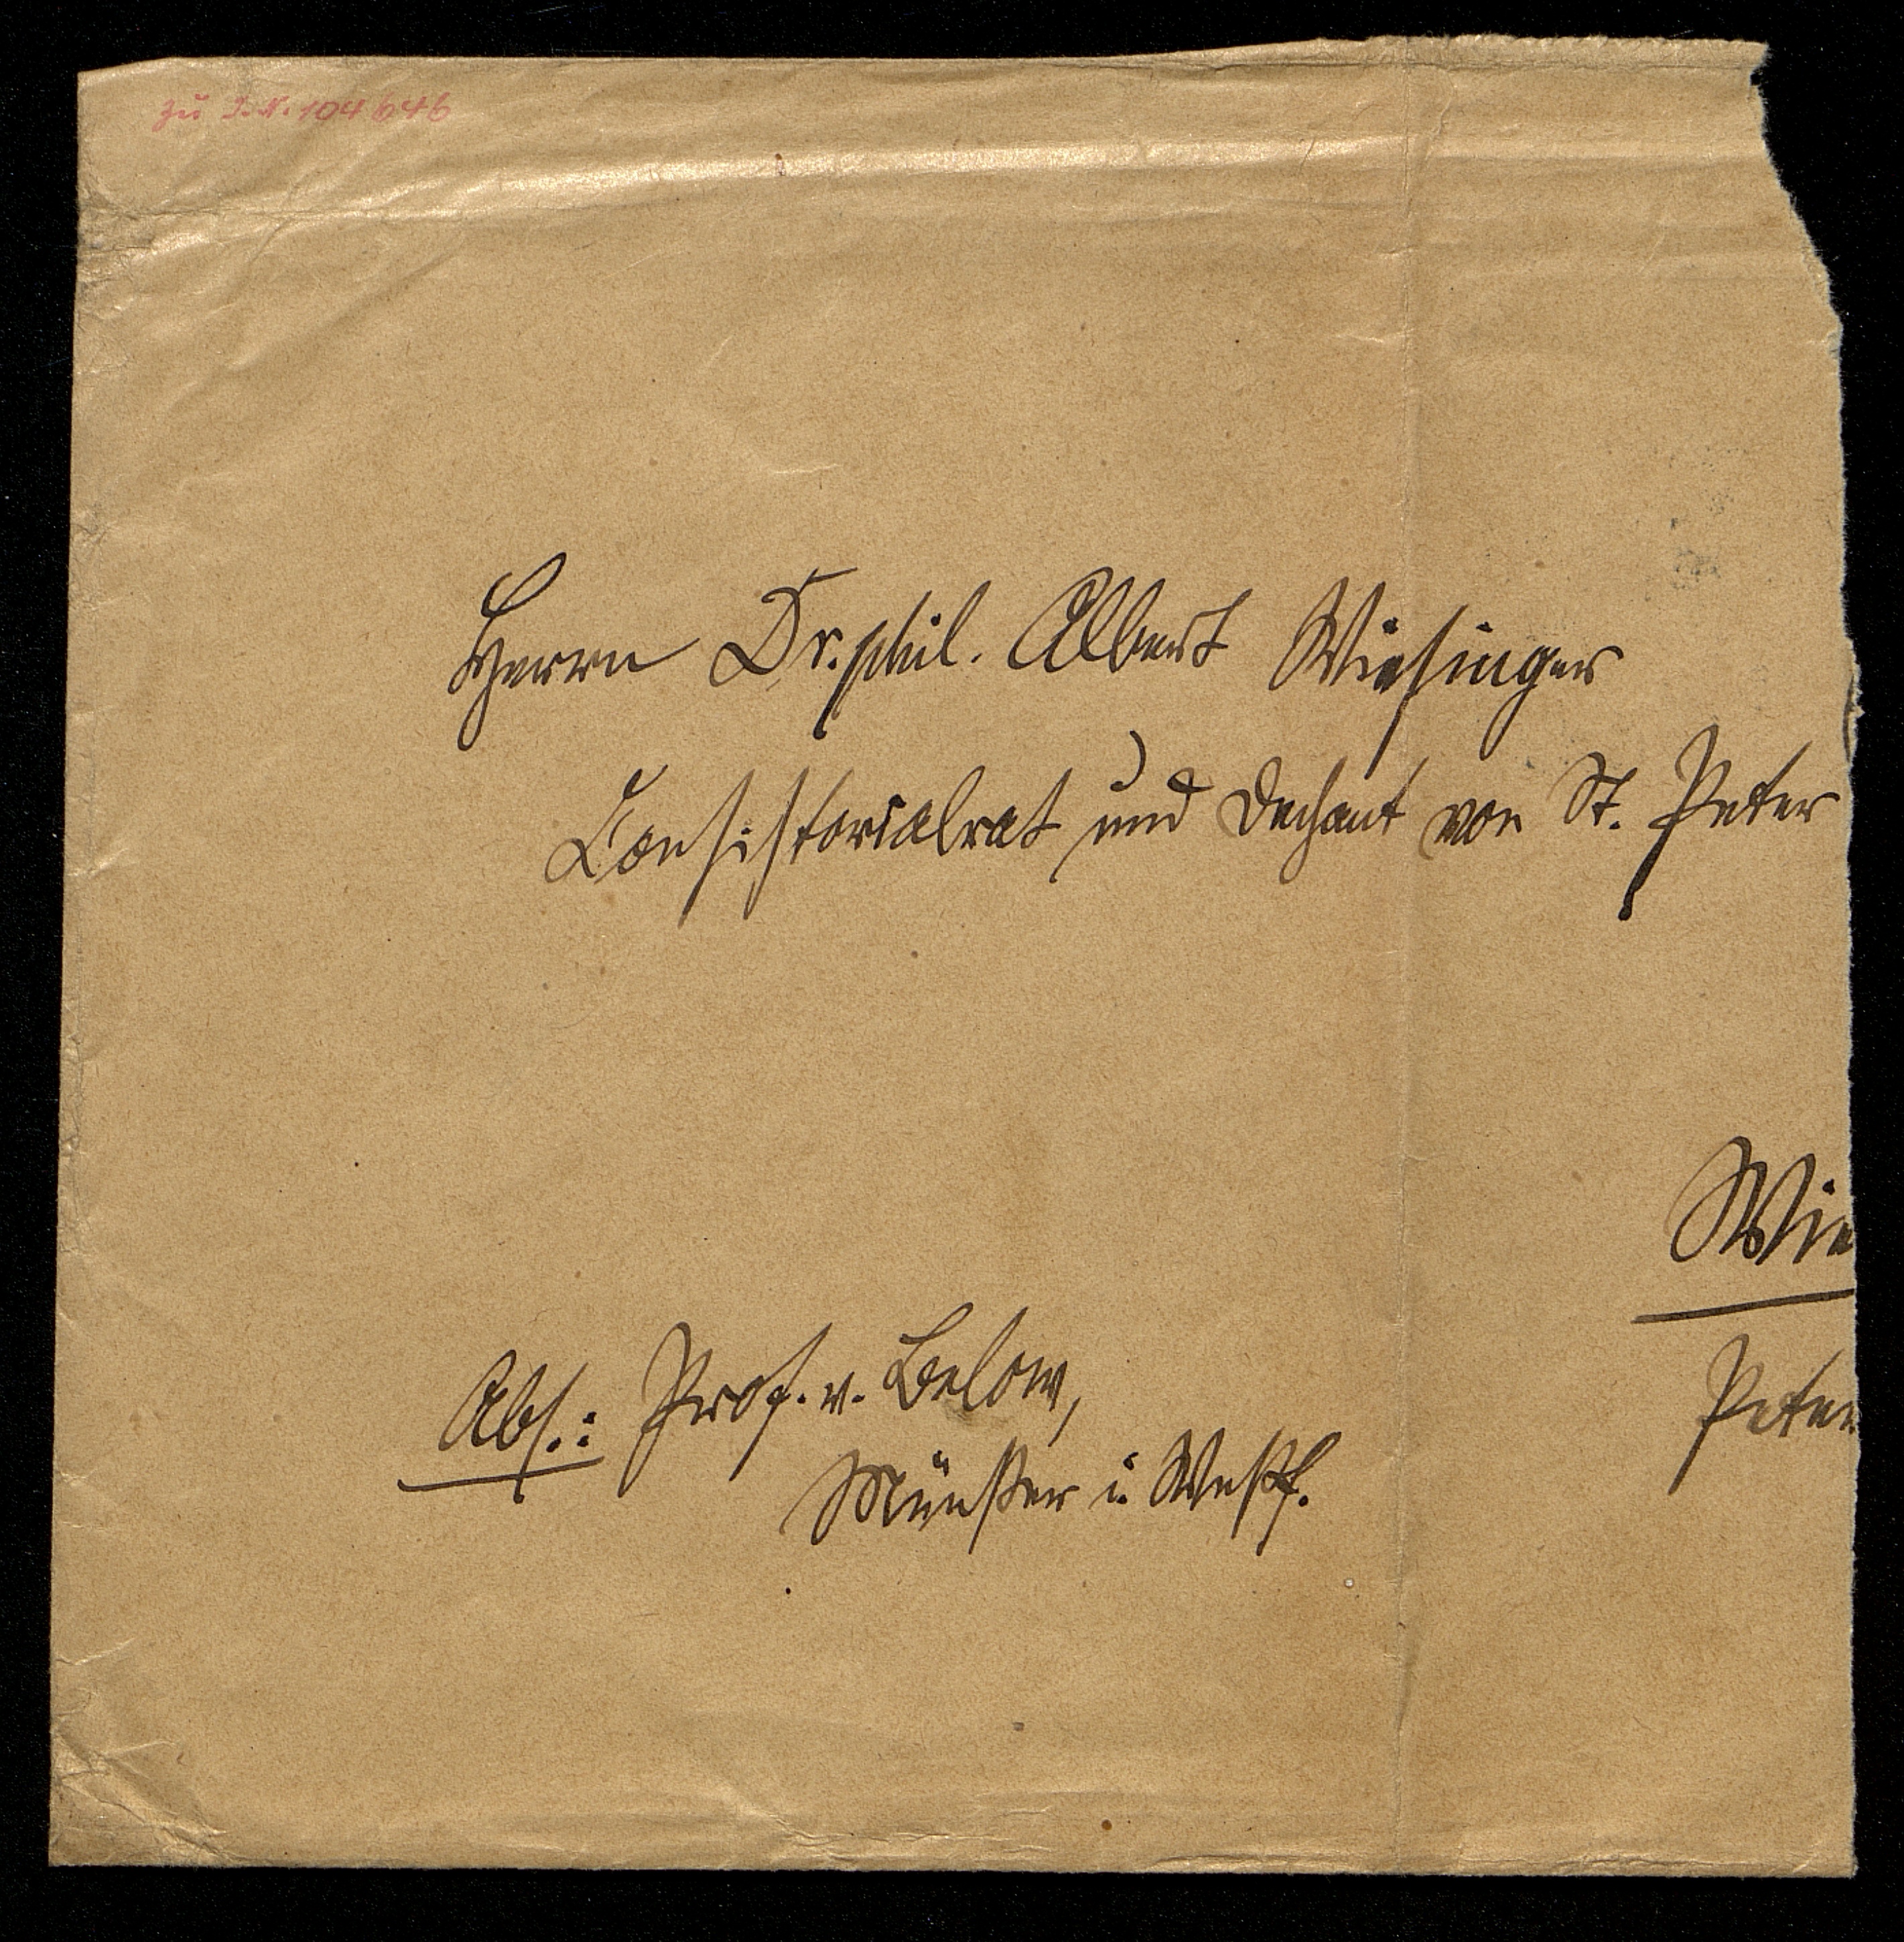 zu I.N. 104646
Herrn Dr. phil. Albert Wiesinger
Consistorialrat und Dechant von St. Peter
Wie
Peter
Abs.: Prof. v. Below,
Münster i. Westf.